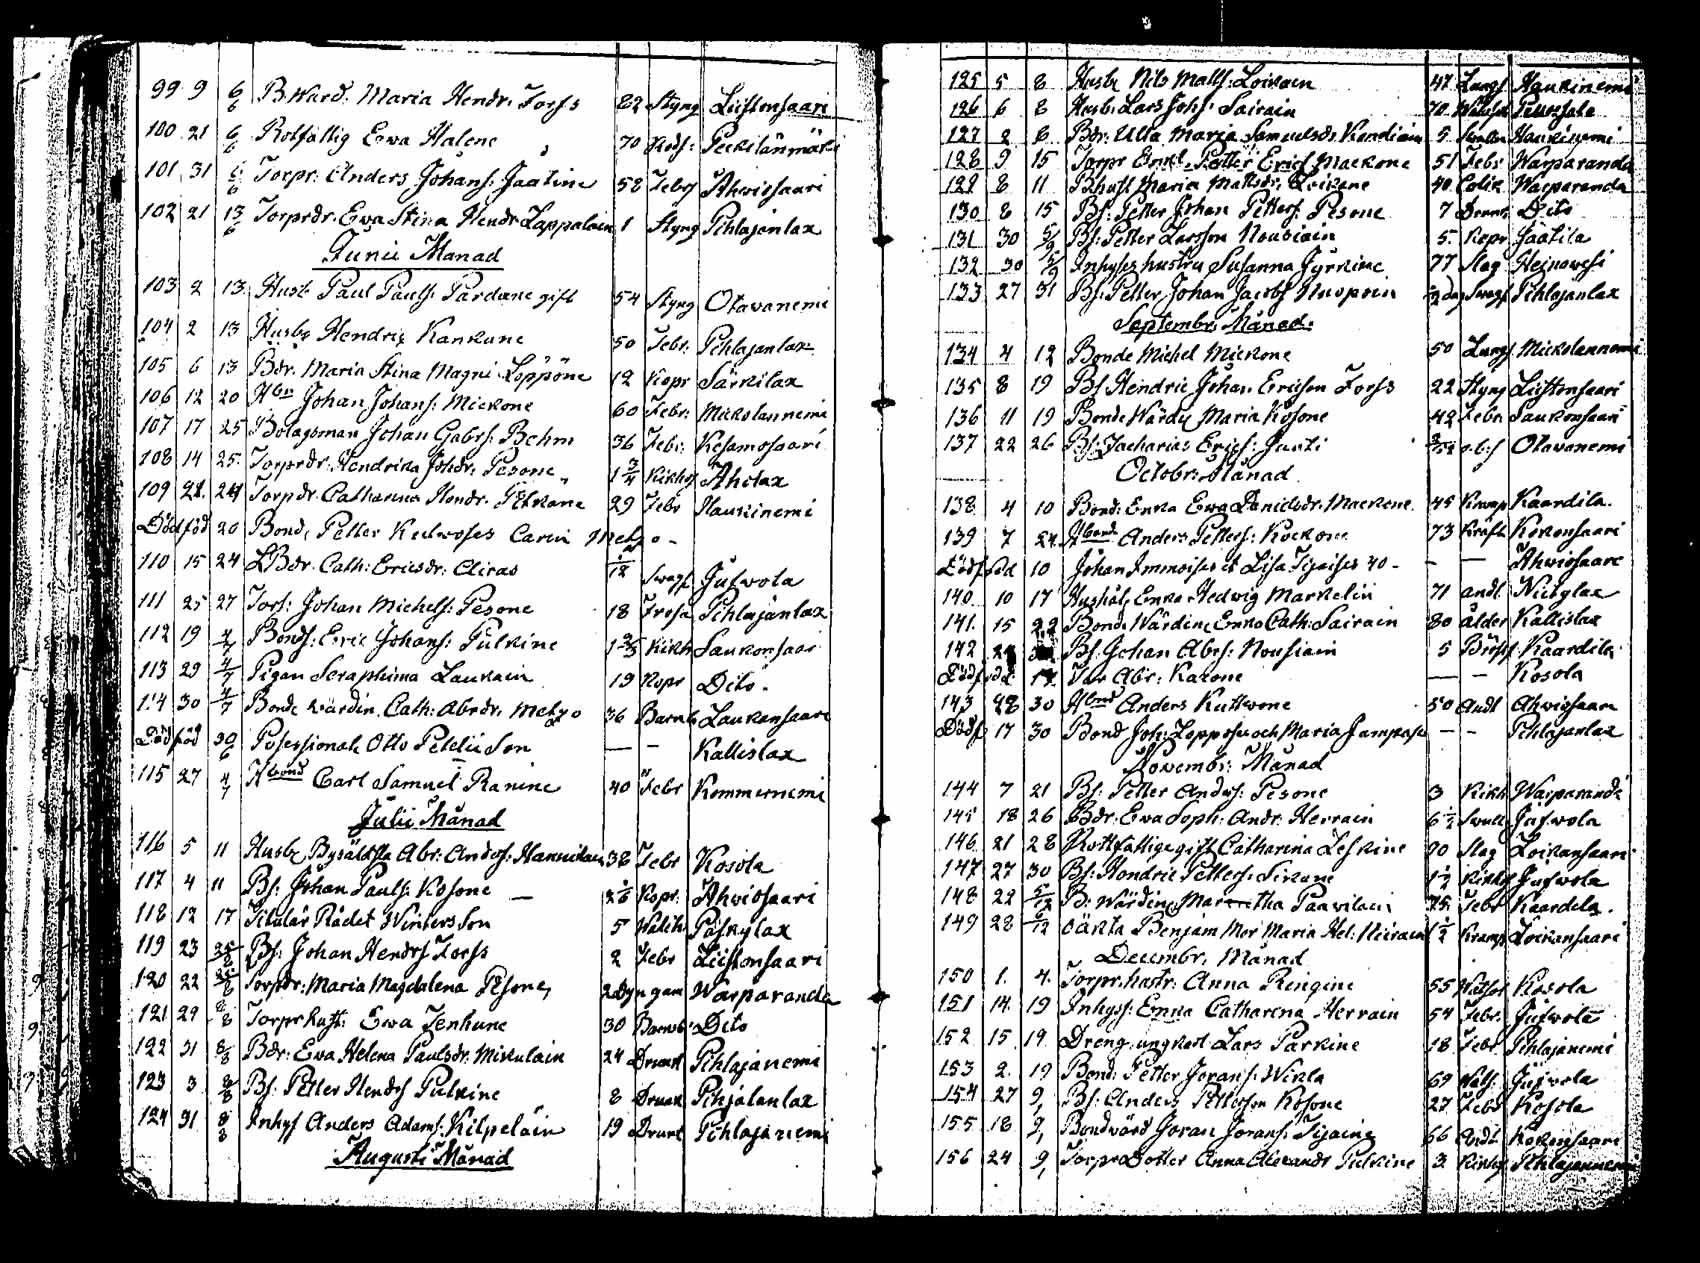 99 9 6/6 B Wärd. Maria Hendr. Torfs 82 Styng Liistonsaari
100 21 6/6 Rotfattig Ewa Halene 70 Peekilänmäki
101 31 6/6 Torpr. Anders Johans: Jaatine 58 Febr Ahwiosaari
102 21 13/6 Torprdr. Ewa Stina Hendr Lappalain 1 Styng Pihlajanlax
Junii Månad
103 2 13 Husb Paul Pauls: Pardane gift 54 Styng Otavanemi
104 2 13 Husbz Hendric Kankane 50 Febr. Pihlajanlax
105 6 13 Bdr. Maria Stina Magni Löppöne 12 Kopr Särkilax
106 12 20 Hbn Johan Johans: Mickone 60 Febr: Mickolannemi
107 17 25 Bolagsman Johan Gabrs: Behm 36 Febr: Kesamosaari
108 14 25 Torprdr. Hendrika Johdr. Pesone 1 3/4 Kikho Aholax
109 21. 24 Torpdr. Catharina Hendr. 29 Febr Haukinemi
Dödföd 20 Bond. Petter Keitwoses Carin Metzo -
110 15 24 LBdr. Cath: Ericsdr. Airas 1/12 Swagh Jufwola
111 25 27 Tors: Johan Michels: Pesone 18 Frosa Pihlajanlax
112 19 4/7 Bonds: Eric Johans: Pulkine 1 Kikh Saukonsaari
113 29 4/7 Pigan Seraphima Laukain 19 Kopr Dito.
114 30 4/7 Bonde wärdin. Cath: Abrdr. Metzo 36 Barnb Laukansaari
Dödföd 30/6 Posessionat Otto Petelii Son — — Kallislax
115 27 4/7 Hbond Carl Samuel Ranine 40 Febr Kommernemi
Julii Månad
116 5 11 Husbz Bysälfsta Abr: Andrs: Hannikain 38 Febr Kosola
117 4 11 Bs: Johan Pauls: Kosone — Kopr. Ahwiosaari
118 12 17 Titulär Rådet Winters Son 5 Pajkylax
119 23 Bs: Johan Hendrs Torfs 2 Febr Liistonsaari
120 22 Torpdr: Maria Magdalena Pesone, 2 dygn gam Warparanda
121 29 8/8 Torpr hust: Ewa Tenhune 30 Barnsb Dito
122 31 8/8 Bdr: Ewa Helena Paulsdr. Miskulain 24 Drunt Pihlajanemi
123 3 8/8 Bs: Petter Hendrs Pulkine 8 Drunt Pihjalanlax
124 31 8/8 Inhys Anders Adams: Kilpeläin 19 Drunt Pihlajanemi
Augusti Månad
125 5 8 Husbz Nils Matts: Loikain 47 Lungs Haukinemi
126 6 8 Husb: Lars Johs: Sairain 70 Wattsot
127 2 8 Bdr: Ulla Maria Samuelsdr. Kandiain 5 Haukinemi
128 9 15 Torpr Petter Erics Mackone 51 Febr Warparanda
129 8 11 Bhust Maria Mattsdr. Loikane 40 Colik Warparanda
130 8 15 Bs: Petter Johan Petters: Pesone 7 Drunt Dito
131 30 5/9 Bs: Petter Larsson Nousiain 5. Kopr Jäätila
132 30 5/9 Inhyses hustru Susanna Jyrkine 77 Slag Heinowesi
133 27 31 Bs: Petter Johan Jacobs Nuoponen Pihlajanlax
Septembr: Månad:
134 4 12 Bonde Michel Mickone 50 Lungs Mickolannemi
135 8 19 Bs Hendric Johan Ericson Torfs 22 Styng Liistonsaari
136 11 19 Bonde Wärdu Maria Kosone 42 Febr Saukonsaari
137 22 26 Bs: Zacharias Erics: Juuti Otavanemi
Octobr: Månad
138 4 10 Bond: Enka Ewa Danielsdr. Mackone 45 Kramp Kaardila.
139 7 24 Hbond Anders Petters: Kockone 73 Kräft Kokonsaari
Dödföd 10 Johan Immoises et Lisa Tijaises 40 - — — Ahwiosaari
140 10 17 Hushåls Enka Hedwig Markelin 71 andt Niitylax
141. 15 22 Bond. Wärdin. Enka Cath: Sairain 80 ålder Kallislax
142 Bs: Johan Abrs: Nousiain 5 Bröst Kaardila
Dödföd 17 Abr: Kakone — — Kosola
143 28 30 Hbond Anders Kuttwone 50 Andt Ahwiosaari
Dödf 17 30 Bond Joh: Loppose och Maria — — Pihlajanlax
Novembr: Månad
144 7 21 Bs: Petter Andrs: Pesone 3 Kikh Warparanda
145 18 26 Bdr. Ewa Soph: Andr. Herrain 6 1/2 Swull Jufwola
146 21 28 Rottfattige gift Catharina Leskine 90 Slag Loikansaari
147 27 30 Bs: Hendric Petters: Sikane 1 1/2 Kikho Jufwola
148 22 5/12 B. Wärdin Martha Paavilain 75 Febr Kaardila.
149 28 6/12 oäkta Benjam Mor Maria Hel: 1/2 Kramp Loikansaari
Decembr. Månad
150 1. 4. Torpr: hustr: Anna Ringine 55 Wattsot Kosola
151 14. 19 Inhys: Enka Catharina Herrain 54 Febr. Jufwola
152 15 19 Dreng. ungkarl Lars Parkine 18 Febr Pihlajanemi
153 2. 19 Bond. Petter Jorans: Wikla 69 Watts. Jufwola
154 27 9, Bs: Anders Pettersson Kosone 27 Febr Kosola
155 18 9, Bondwärd Joran Jorans: Tijaine 66 Kokonsaari
156 24 9, Torpr Dotter Anna Alexandr Pulkine 3 Kikho Pihlajannemi